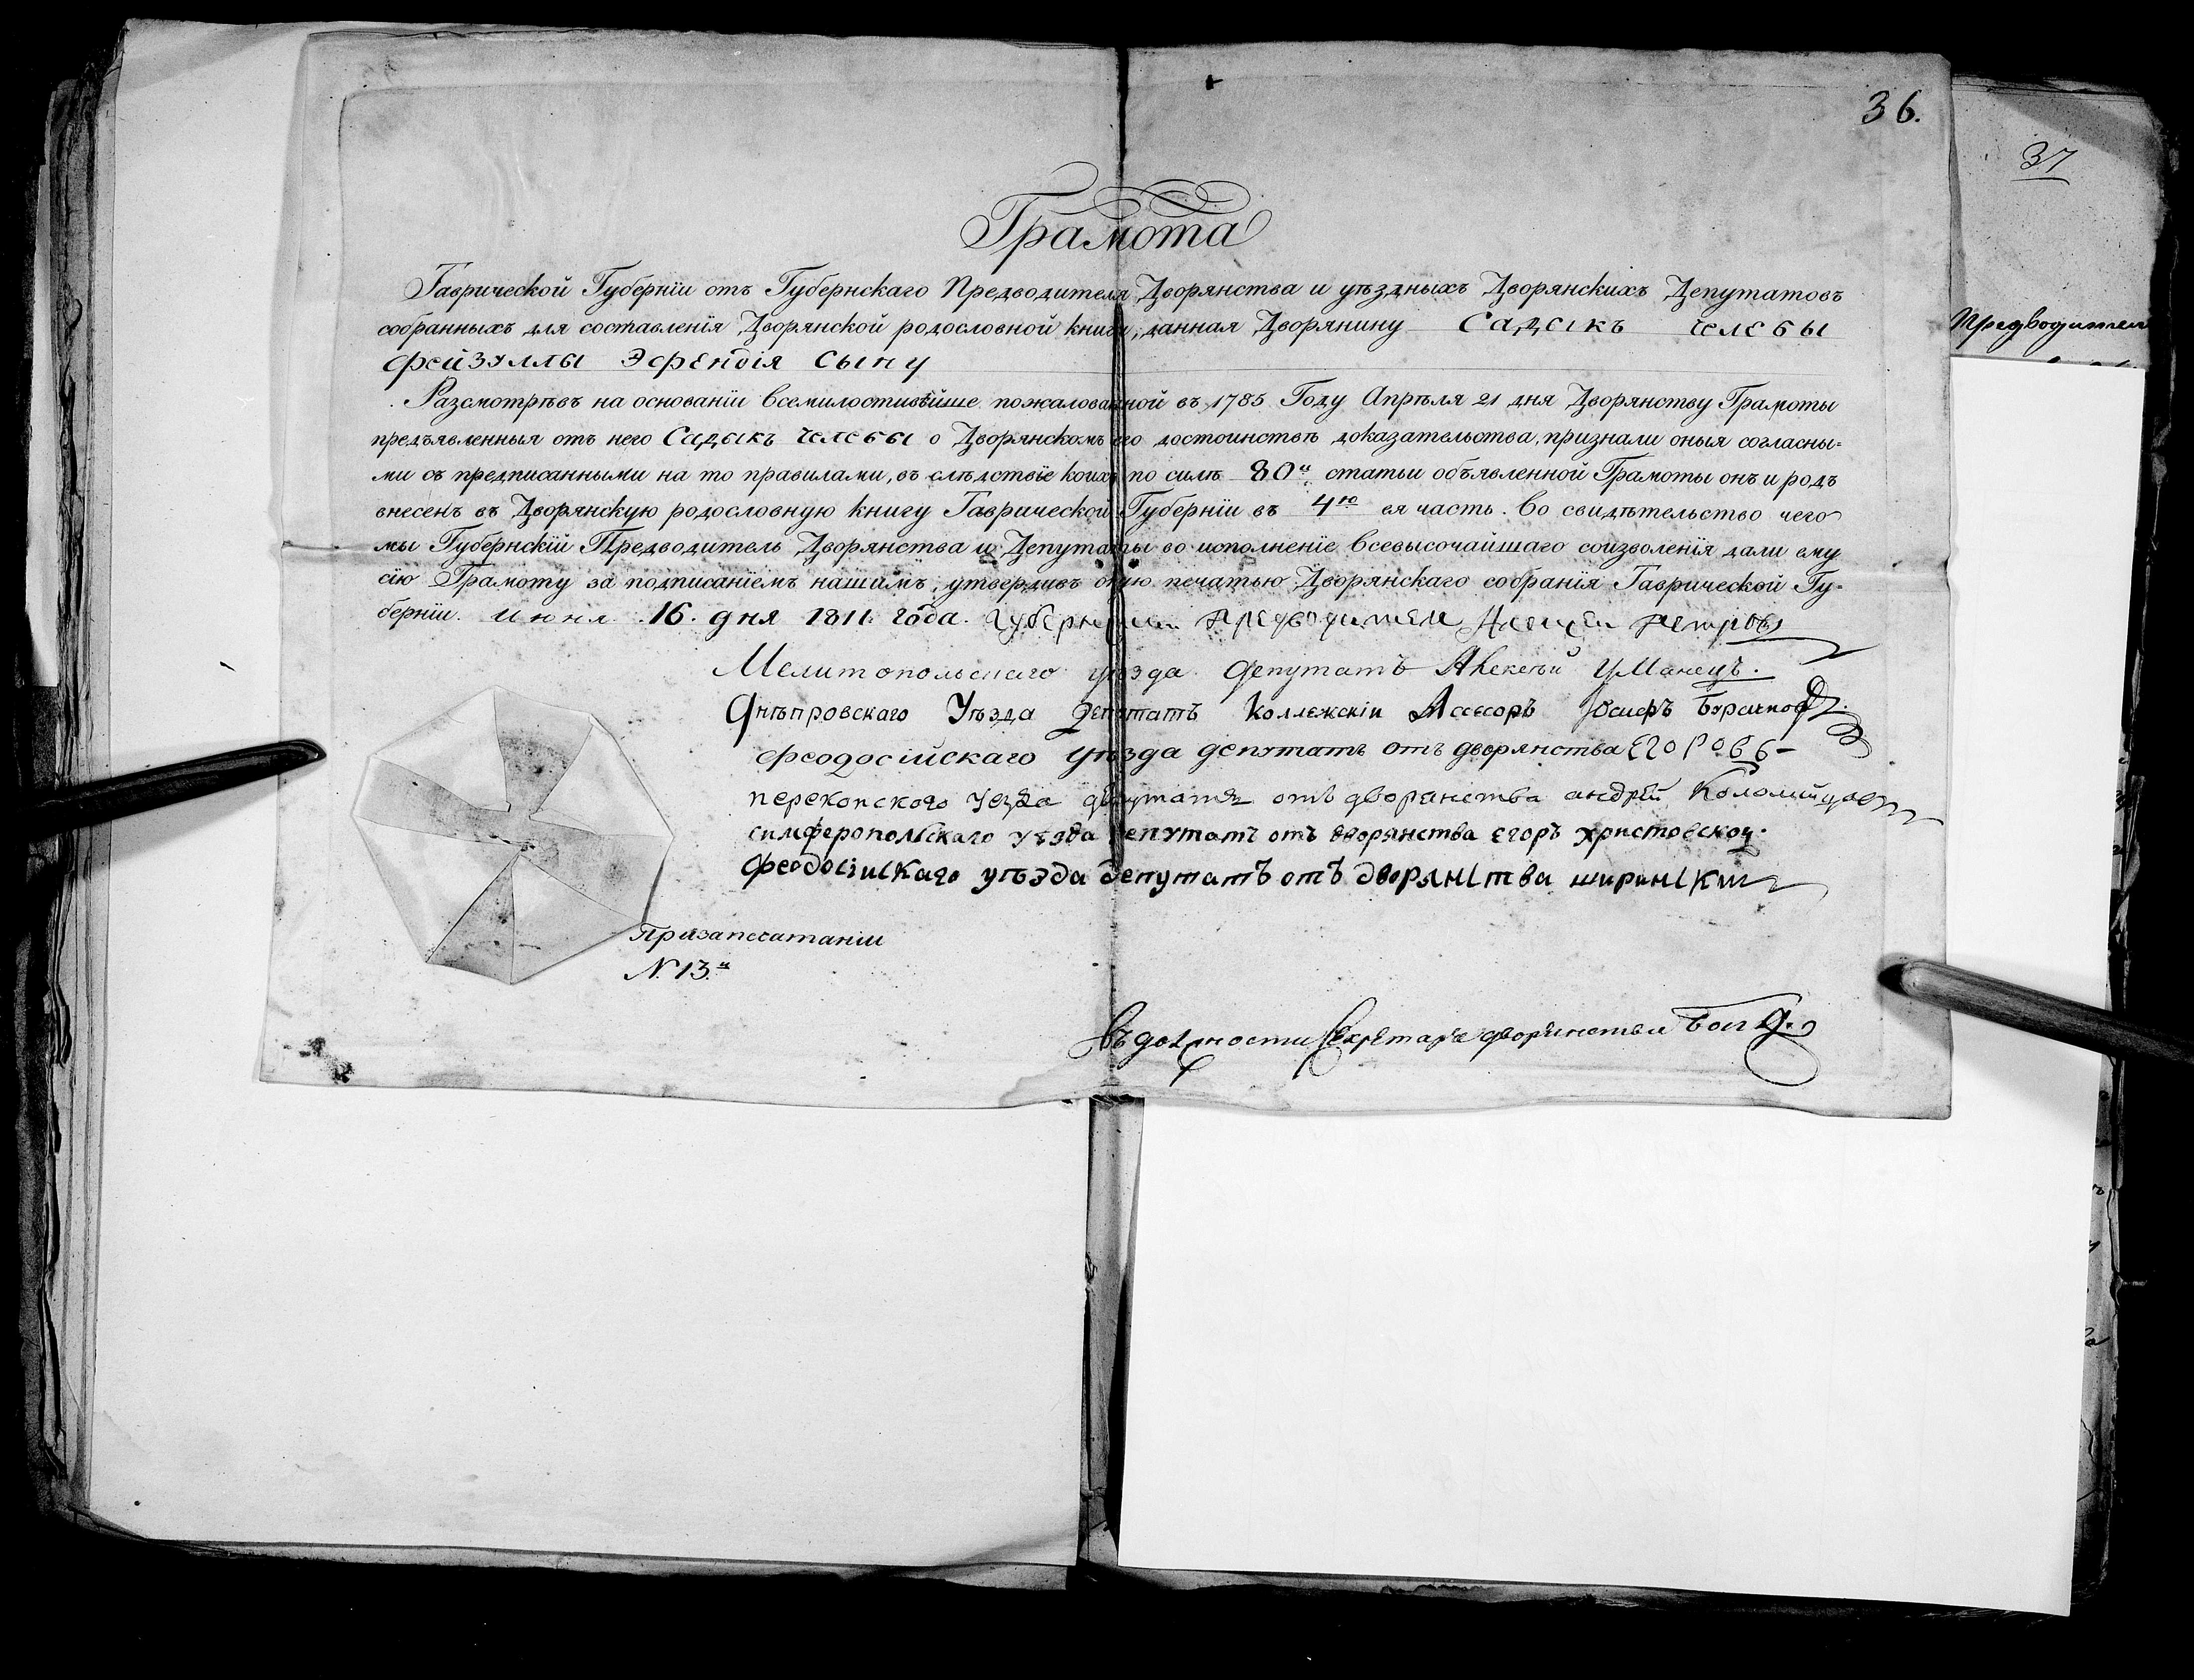 36.
37
Грамота
Таврической Губернїи отъ Губернскаго Предводителя Дворянства и уѣздныхъ Дворянскихъ Депутатовъ
собранныхъ для составленїя Дворянской родословной книги, данная Дворянину Садыкъ челебы
фейзуллы Эфендія сыну
Разсмотрѣвъ на основанїи всемилостивѣйше пожалованной въ 1785 Году Апрѣля 21 дня Дворянству Грамоты
предъявленныя отъ него Садыкъ челебы о Дворянскомъ его достоинствѣ доказательства, признали оныя согласны=
ми съ предписанными на то правилами, въ слѣдствїе коихъ по силѣ 80й статьи объявленной Грамоты онъ и родъ
внесенъ въ Дворянскую родословную книгу Таврической Губернїи въ 4ю ея часть. Во свидѣтельство чего
мы Губернскїй Предводитель Дворянства и Депутаты во исполненїе всевысочайшаго соизволенїя дали ему
сїю Грамоту за подписанїемъ нашимъ, утвердивъ оную печатью Дворянскаго собранїя Таврической Гу-
бернїи. июня 16. дня 1811. года. Губернскїи предводитель
Мелитопольскаго уѣзда депутатъ Алексѣй уманецъ.
Днѣпровскаго Уѣзда Депутатъ Коллежскіи Ассесоръ Іосифъ
феодосійскаго уѣзда депутатъ отъ дворянства Егоровъ
перекопского уезда депутатъ отъ дворянства андрей Коломийцовъ
симферопольскаго уѣзда депутатъ отъ дворянства егоръ христовской.
феодосіискаго уѣзда депутатъ отъ дворянства ширинскии
призапечатаніи
N. 13.й
Въ должности Секретаря дворянства
Предводител